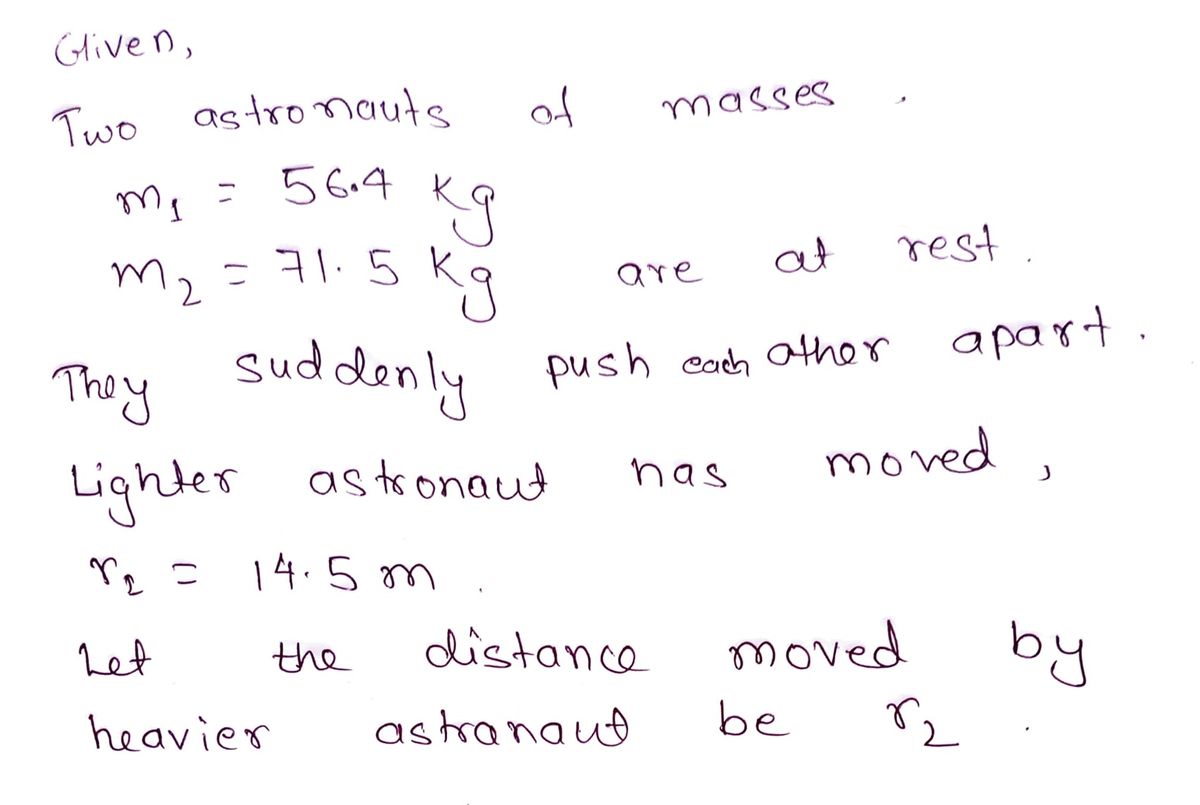 Given,
Two astronauts of masses .
m₁ = 56.4 kg
m₂ = 71.5 kg are at rest .
They suddenly push each other apart .
Lighter astronaut has moved ,
r₂ = 14.5 m .
Let the distance moved by
heavier astranaut be r₂ .